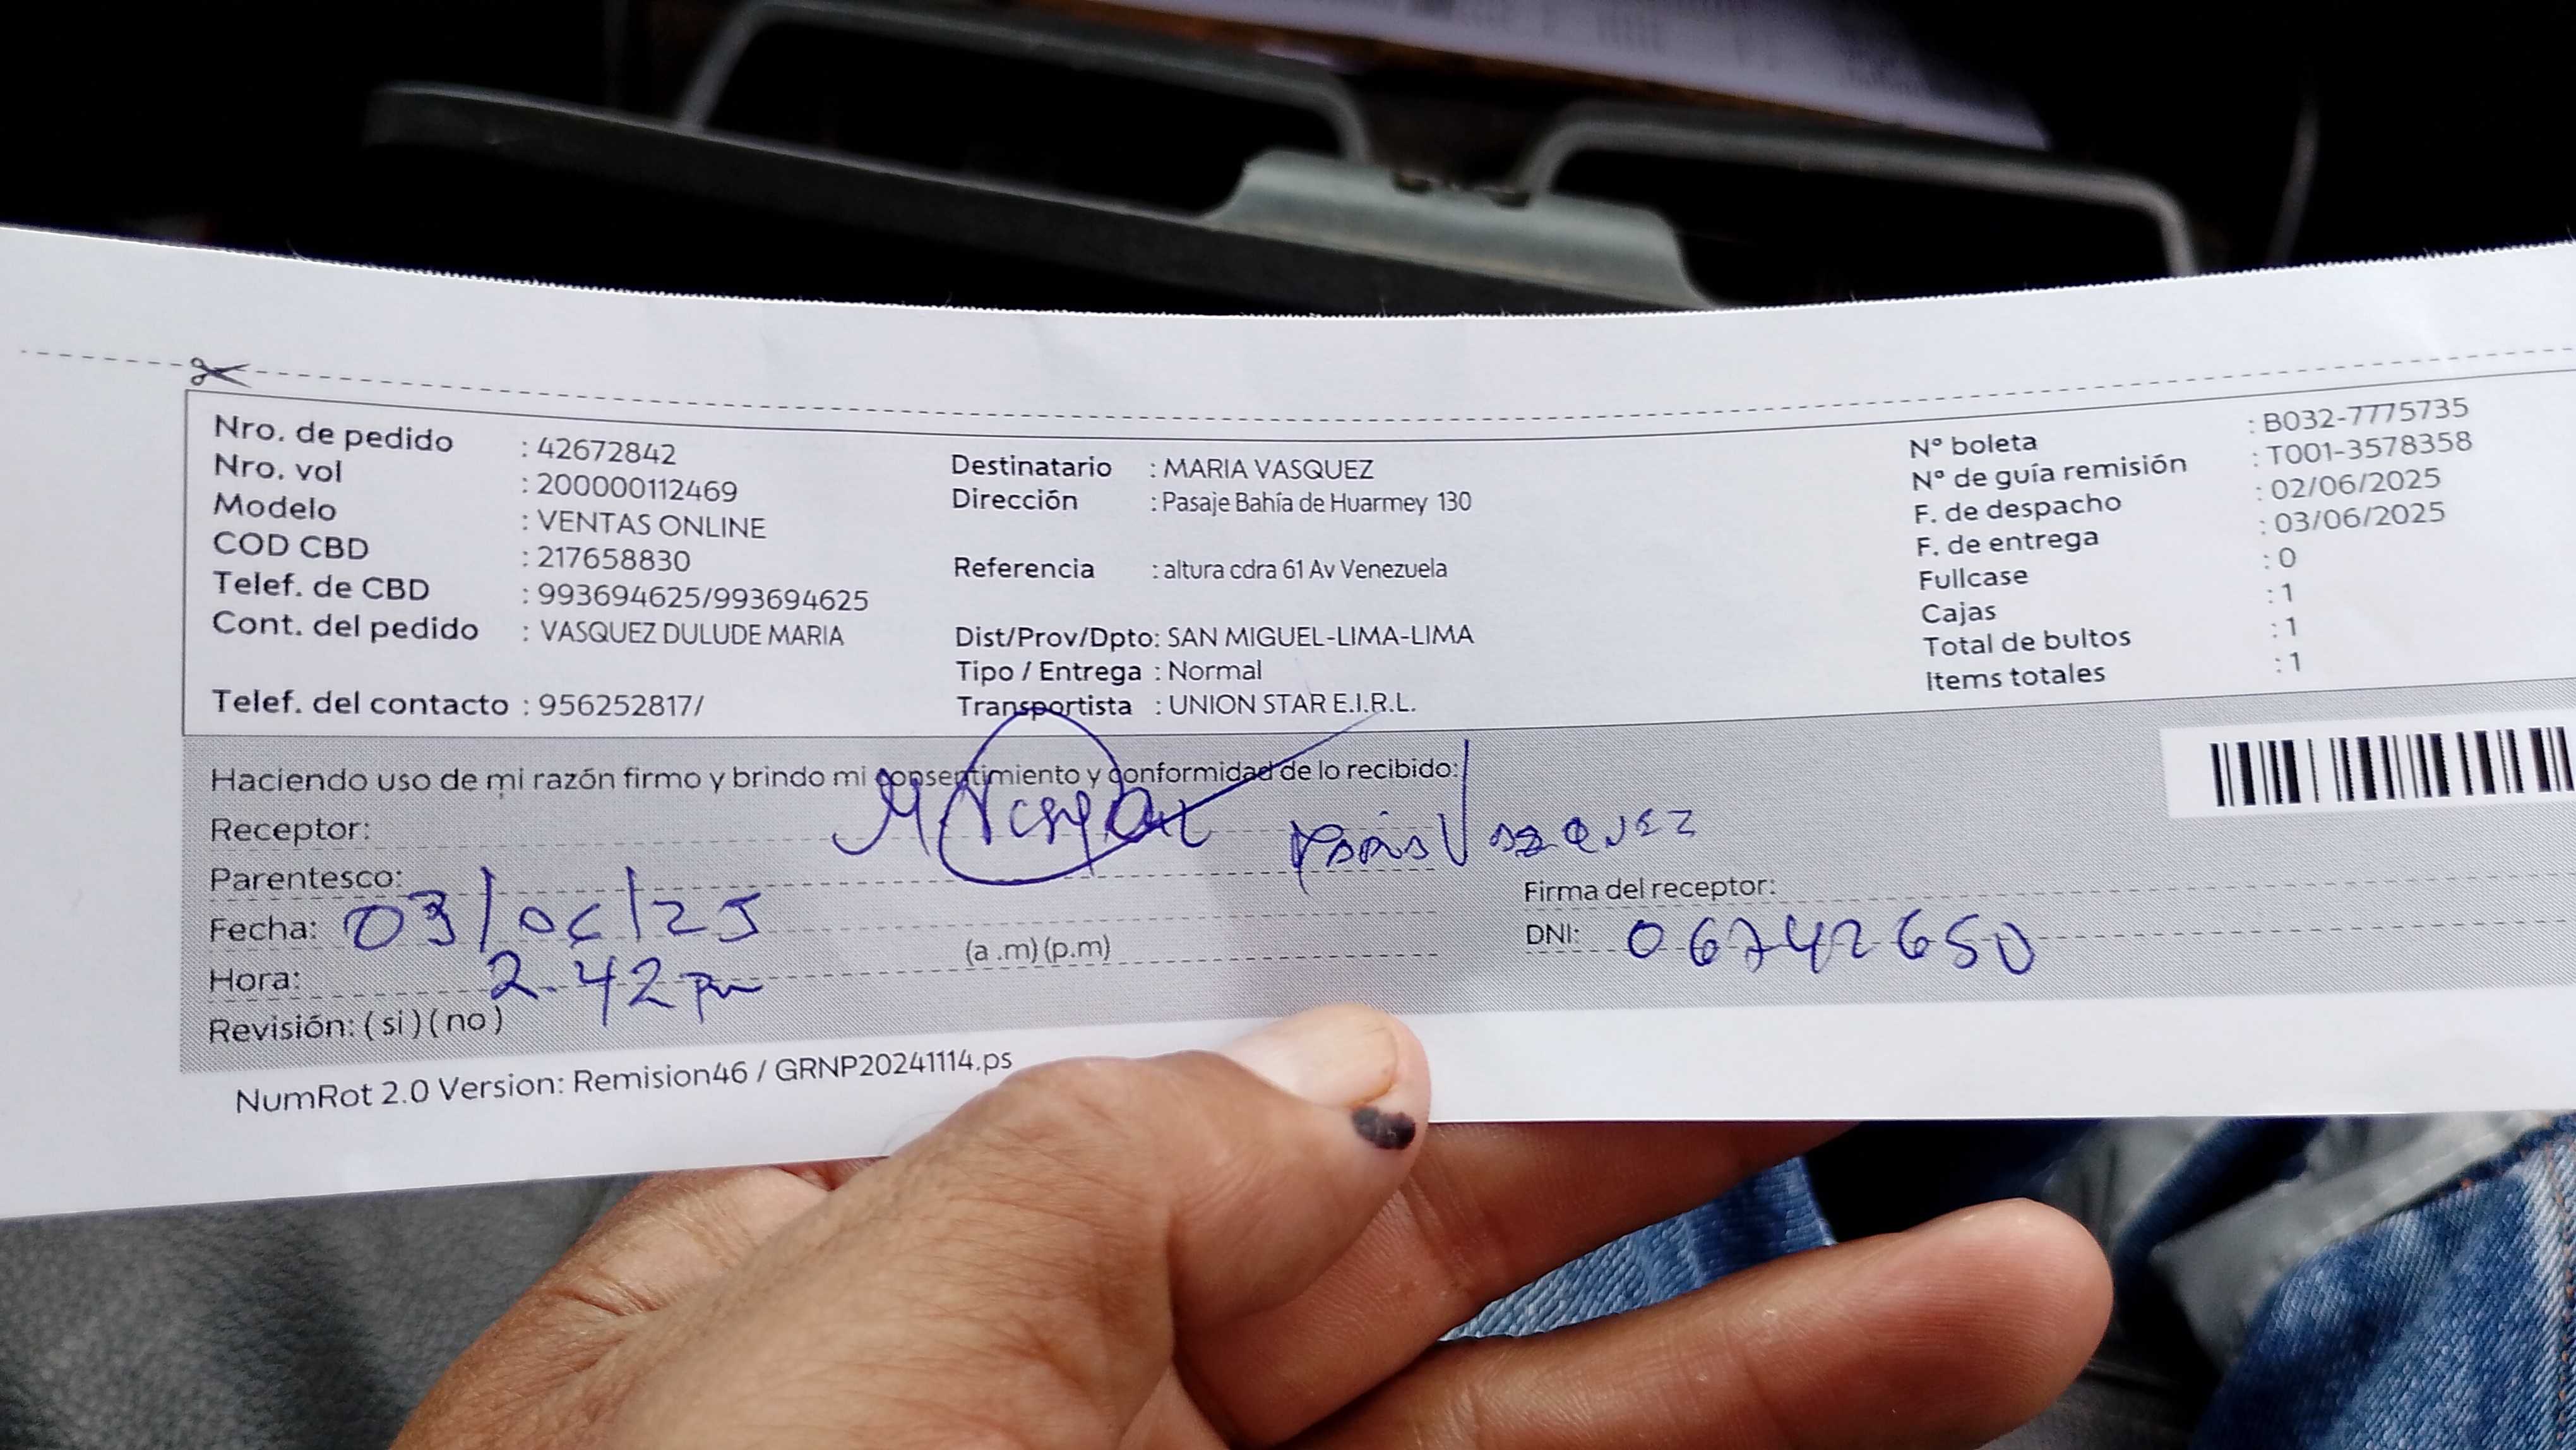 Nro. de pedido : 42672842
Nro. vol : 200000112469
Modelo : VENTAS ONLINE
COD CBD : 217658830
Telef. de CBD : 993694625/993694625
Cont. del pedido : VASQUEZ DULUDE MARIA
Telef. del contacto : 956252817/
Destinatario : MARIA VASQUEZ
Dirección : Pasaje Bahía de Huarmey 130
Referencia : altura cdra 61 Av Venezuela
Dist/Prov/Dpto: SAN MIGUEL-LIMA-LIMA
Tipo / Entrega : Normal
Transportista : UNION STAR E.I.R.L.
N° boleta : B032-7775735
N° de guía remisión : T001-3578358
F. de despacho : 02/06/2025
F. de entrega : 03/06/2025
Fullcase : 0
Cajas : 1
Total de bultos : 1
Items totales : 1
Haciendo uso de mi razón firmo y brindo mi consentimiento y conformidad de lo recibido:
Receptor:
Vasquez
Parentesco:
Firma del receptor:
Fecha: 03/06/25
(a .m) (p.m)
DNI: 06742650
Hora: 2.42 pm
Revisión: (si) (no)
NumRot 2.0 Version: Remision46 / GRNP20241114.ps